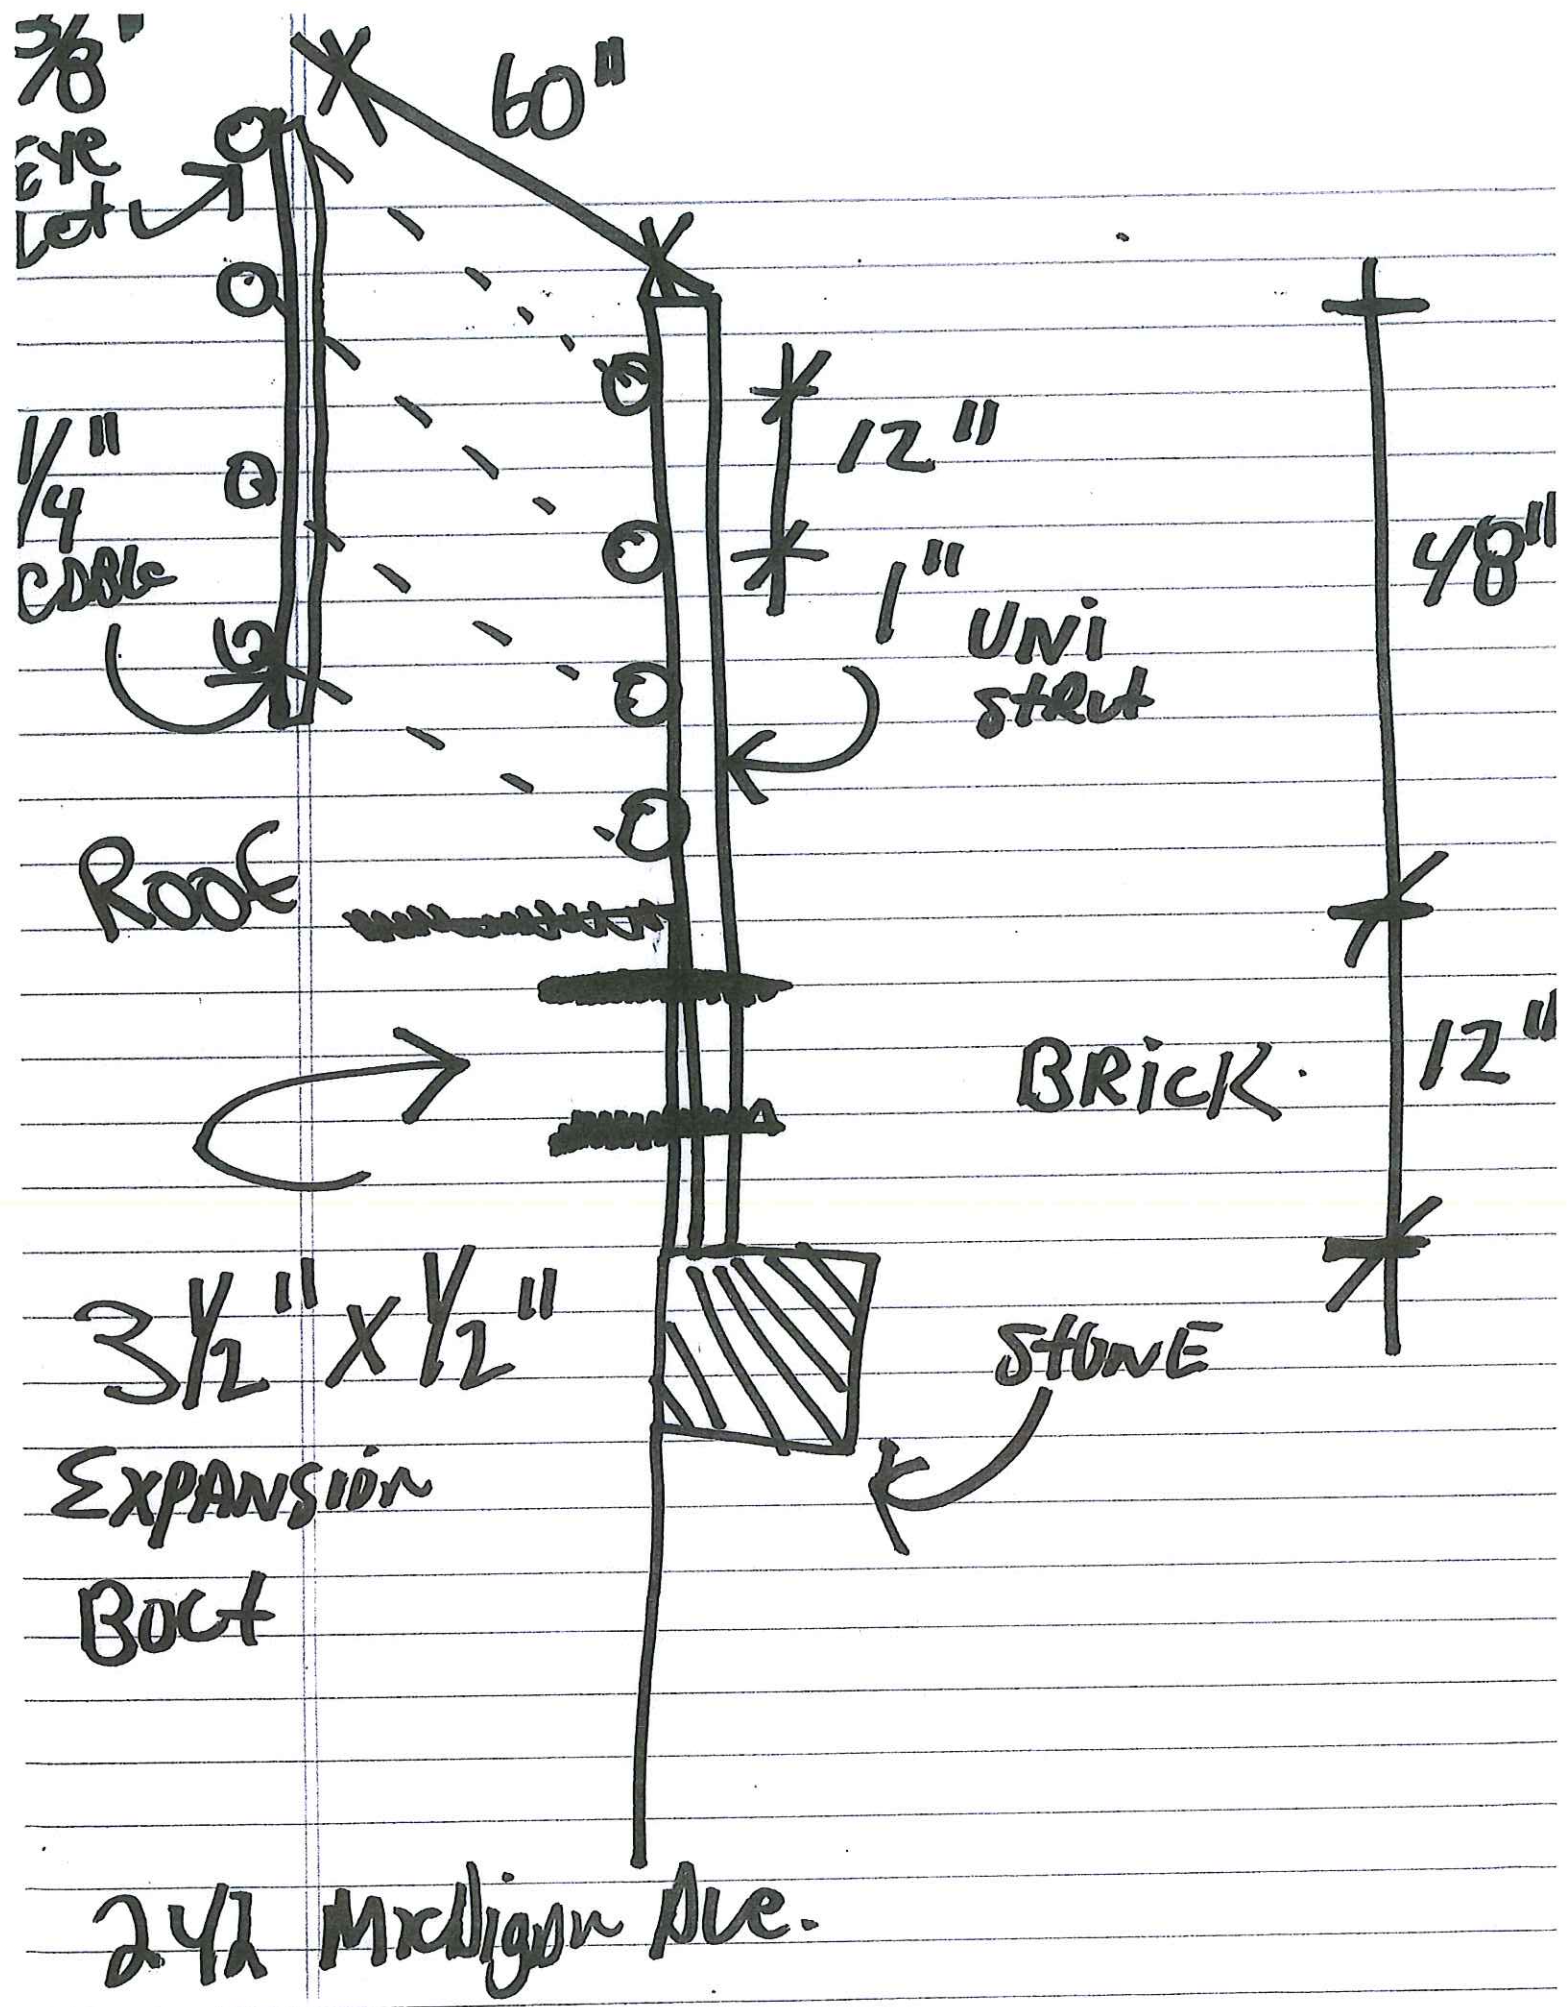 3/8"
Eye
Let
60"
12"
1/4"
CABLE
1"
UNI
StRut
48"
ROOF
BRICK
12"
3 1/2" X 1/2"
EXPANSION
BOLt
StONE
242 Michigan Ave.